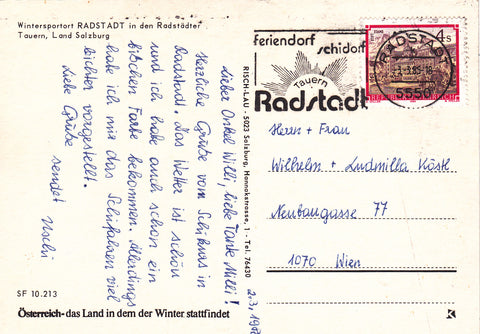 Wintersportort RADSTADT in den Radstädter
Tauern, Land Salzburg
Lieber Onkel Willi, liebe Tante Milli!
Herzliche Grüße vom Schikurs in
Radstadt. Das Wetter ist schön
und ich habe auch schon ein
bißchen Farbe bekommen. Allerdings
habe ich mir das Schifahren viel
leichter vorgestellt.
Liebe Grüße sendet Uschi
2.3.198
SF 10.213
Österreich - das Land in dem der Winter stattfindet
RISCH-LAU · 5023 Salzburg, Hannakstrasse, 1 · Tel. 76430
feriendorf
schidorf
Tauern
Radstadt
RADSTADT
5550
4 S
REPUBLIK ÖSTERREICH
Herrn + Frau
Wilhelm + Ludmilla
Neubaugasse 77
1070 Wien